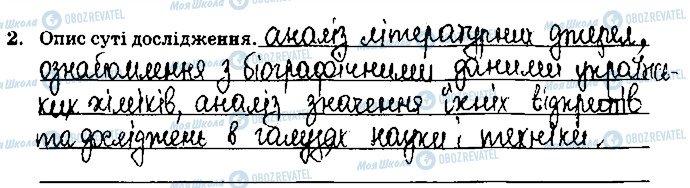 2. Опис суті дослідження. аналіз літературних джерел,
ознабомлення з біографічними даними україньс-
ких хіміків, аналіз значення їхніх відкриттів
та досліджень в галузях науки і техніки.